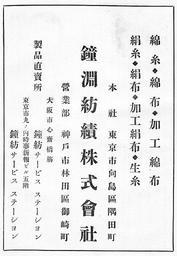 綿糸・綿布・加工綿布
絹糸・絹布・加工絹布・生糸
鐘淵紡績株式會社
本社 東京市向島區隅田町
營業部 神戸市林田區御崎町
製品直賣所
大阪市心斎橋筋
鐘紡サービス ステーション
東京市丸ノ内時事新報ビル五階
鐘紡サービス ステーション